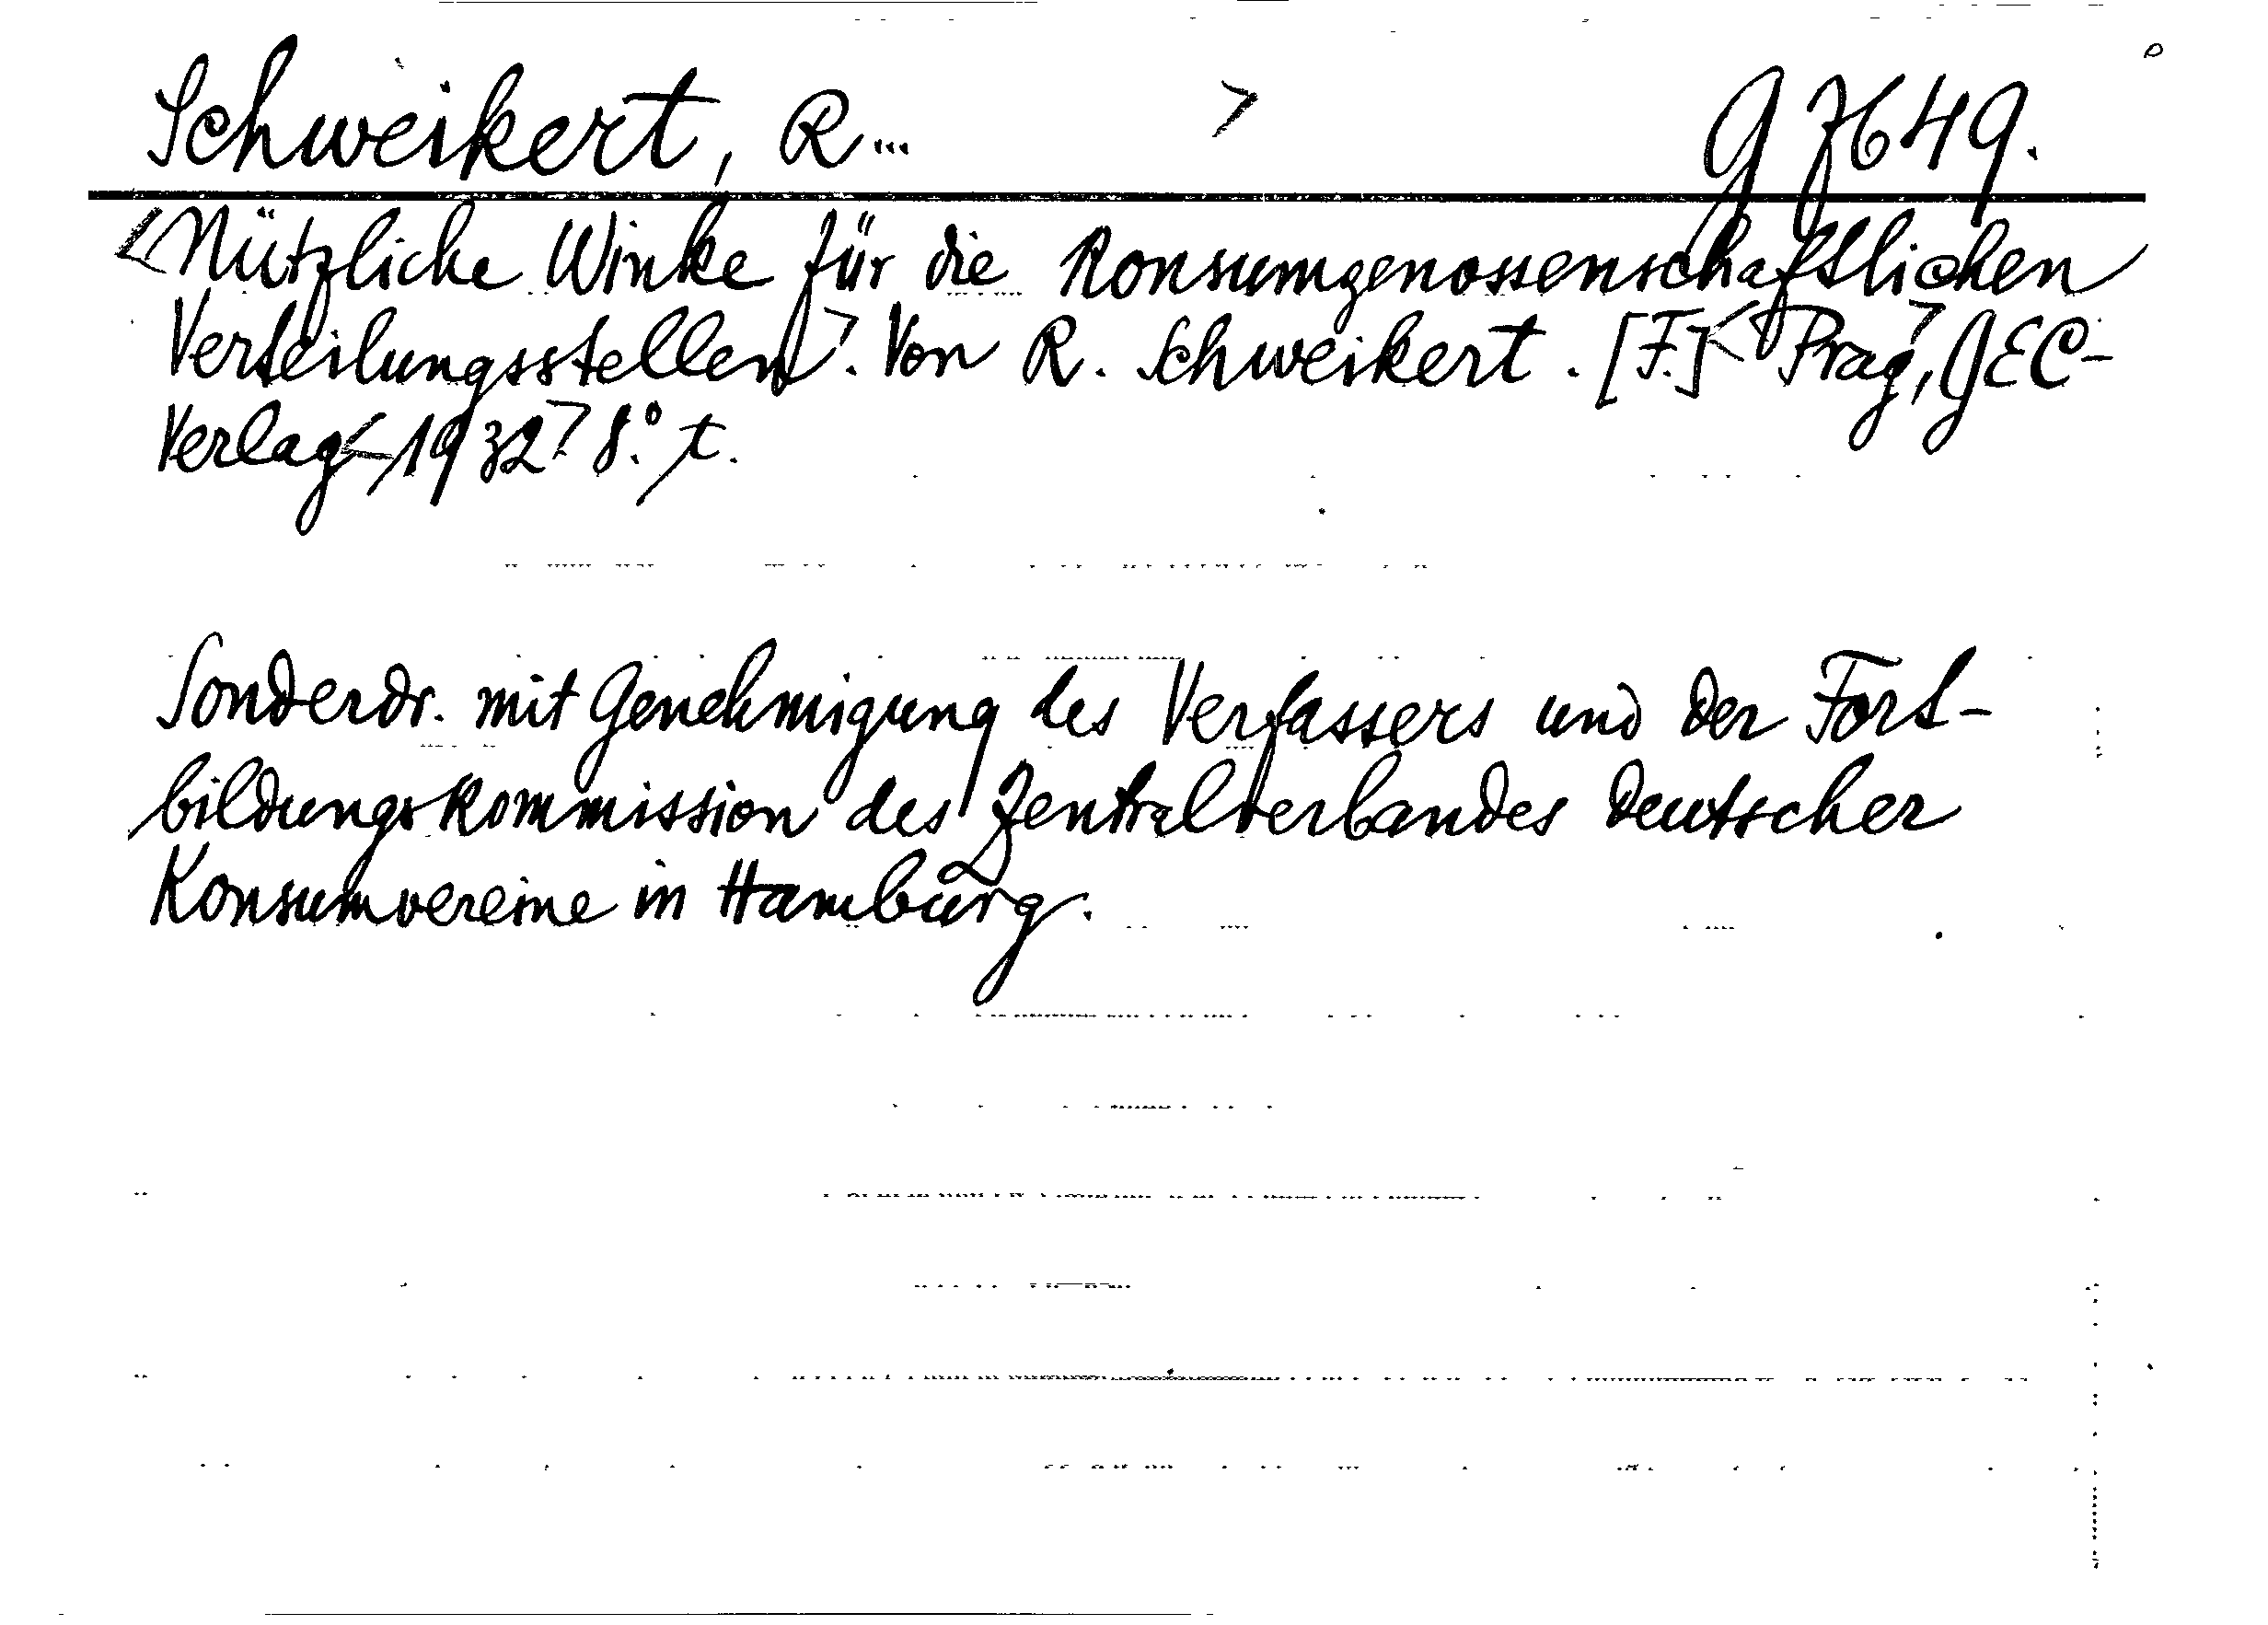 Schweikert, R... > G 7649.
<Nützliche Winke für die konsumgenossenschaftlichen
Verteilungsstellen>. Von R. Schweikert. [F.] <Prag>, GEC-
Verlag <1932> 8.° t.
Sonderdr. mit Genehmigung des Verfassers und der Fort-
bildungskommission des Zentralverbandes deutscher
Konsumvereine in Hamburg.